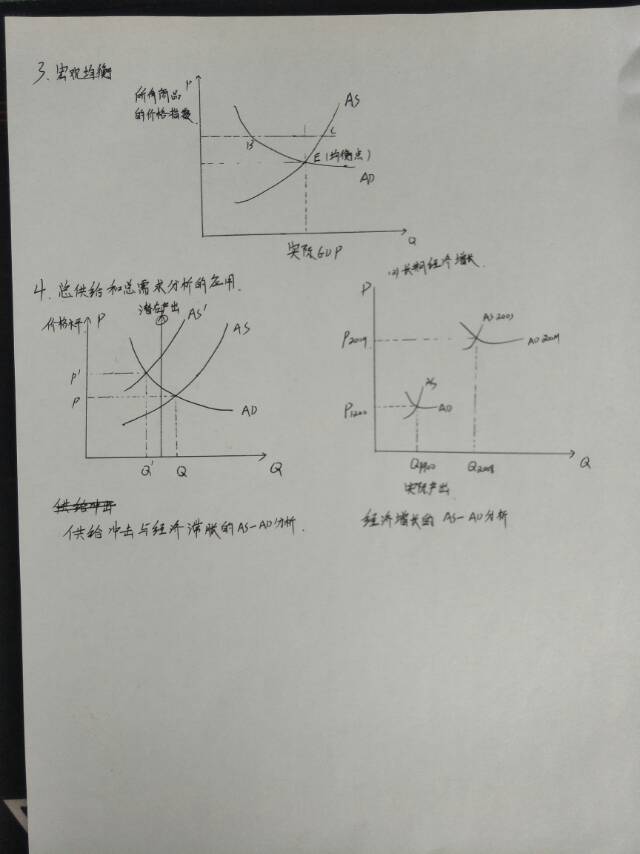 3. 宏观均衡
P
所有商品
的价格指数
AS
B
C
E(均衡点)
AD
Q
实际GDP
4. 总供给和总需求分析的应用.
潜在产出
价格水平
P
AS'
AS
P'
P
AD
Q'
Q
Q
供给冲击与经济滞胀的AS-AD分析.
长期经济增长.
P
P2009
AD2009
AS
P1900
AD
Q1900
Q2008
Q
实际产出
经济增长的 AS-AD分析